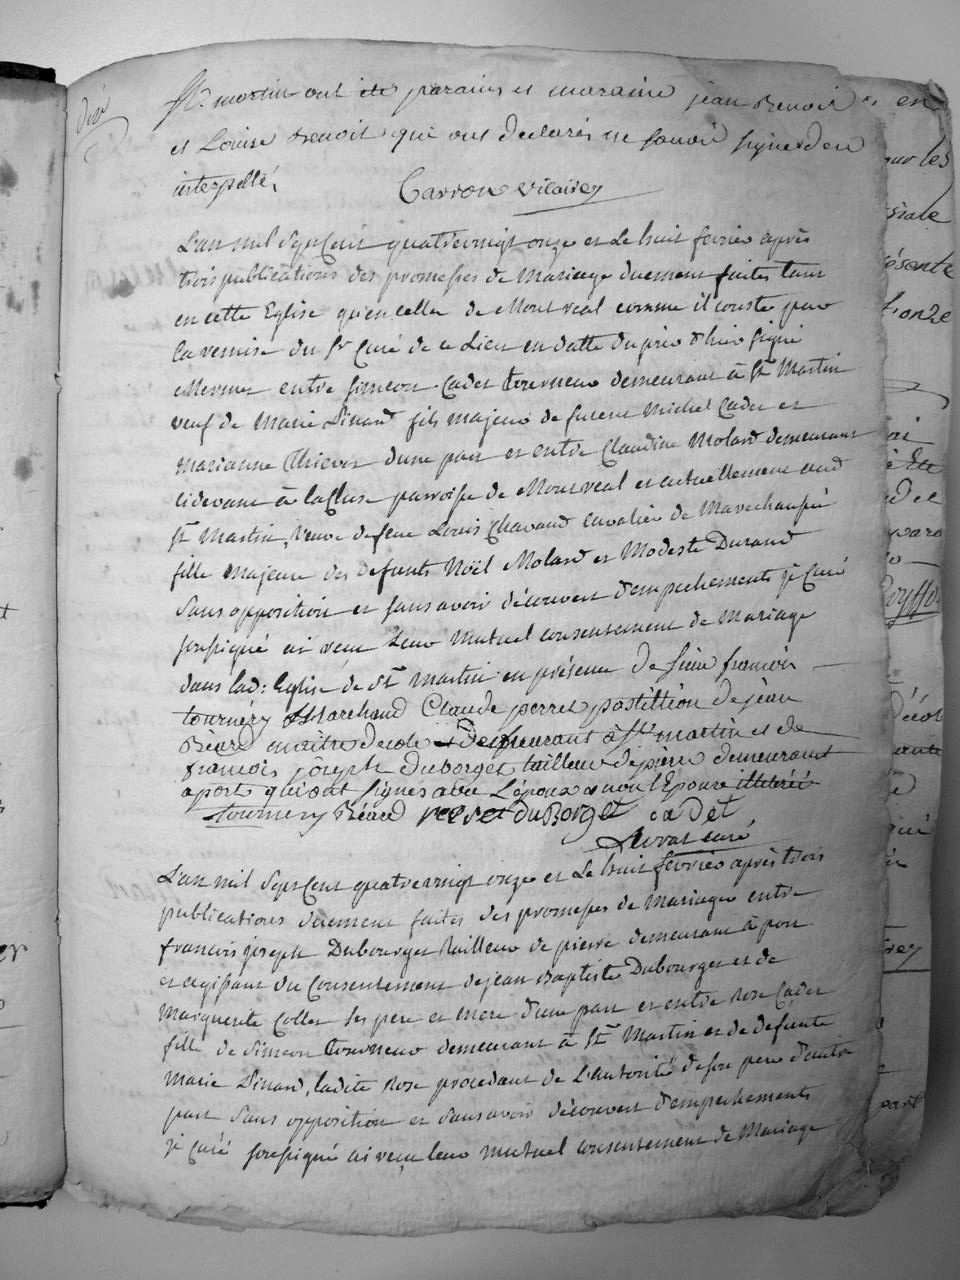 dix
St. martin ont ete parains et maraine jean Benoit
et Louise Benoit qui ont declarés ne savoir signer de ce
interpellé,
Carron vicaire
L'an mil Sept Cent quatrevingt onze et Le huit fevrier après
trois publications des promesses de Mariage duement faites tant
en cette Eglise qu'en celle de Mont real comme il conste par
la remise du Sr Curé de ce Lieu en datte du jour d'hier signé
Mermet entre Simeon Cadet tourneur demeurant à St Martin
veuf de Marie Dinard fils majeur de fureur Michel Cadet et
marianne Thievon d'une part et entre Claudine Molard demeurant
cidevant à la Cluse parroisse de Montreal et actuellement aud
St Martin, Veuve de feu Louis Chavand cavalier de Marechaussée
fille majeure des defunts Noël Molard et Modeste Durand
Sans opposition et sans avoir découvert d'empechements je Curé
soussigné ai reçu Leur Mutuel consentement de Mariage
dans lad: Eglise de St Martin en présence de Sieur francois
tournery Marchand Claude perret postillion de jean
Béard maitre decole demeurant à St martin et de
francois joseph duborget tailleur de pierre demeurant
a port qui ont signés avec L'époux et non l'Epouse illiterée
tournery Béard perret duBorget cadet
curé
L'an mil Sept Cent quatrevingt onze et Le huit fevrier après trois
publications duement faites des promesses de Mariage entre
francois joseph Dubourget tailleur de pierre demeurant à port
et agissant du Consentement de jean Baptiste Dubourget et de
Marguerite Collet Ses pere et mere d'une part et entre Rose Cadet
fille de Simeon tourneur demeurant à St Martin et de defunte
Marie Dinard, ladite Rose procedant de L'autorité de son pere d'autre
part Sans opposition et Sans avoir découvert d'empechements
je Curé soussigné ai reçu leur mutuel consentement de Mariage